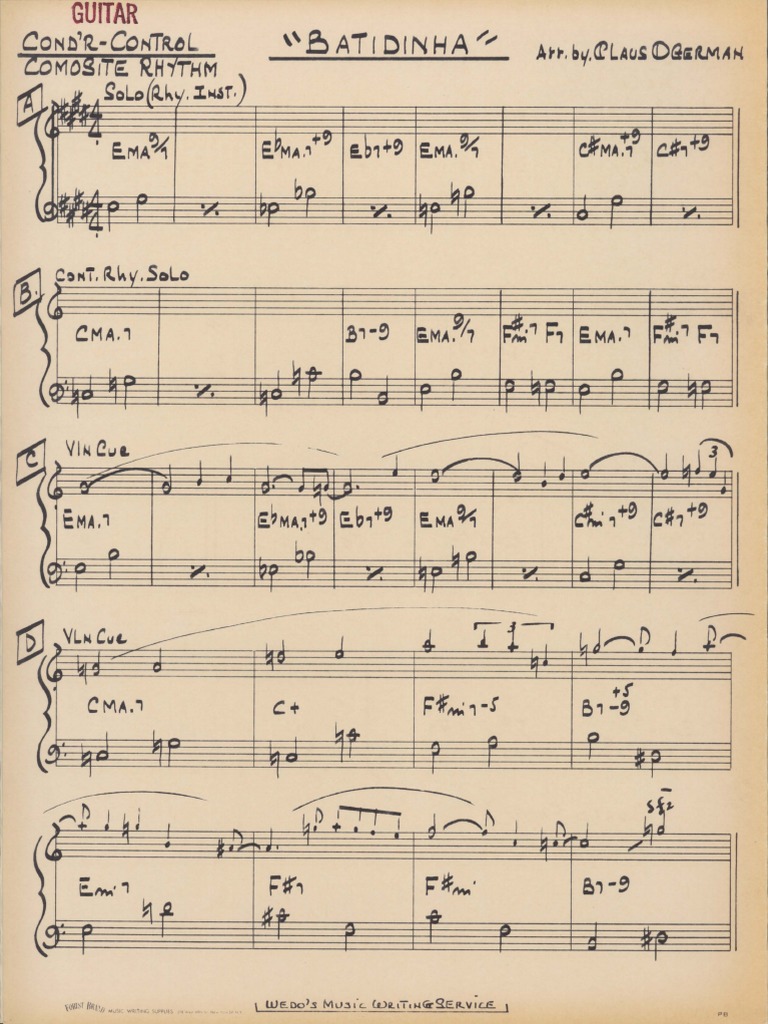 GUITAR
COND'R-CONTROL
COMOSITE RHYTHM
"BATIDINHA"
Arr. by. CLAUS OGERMAN
A
SOLO (Rhy. INST.)
EMA9/7 EbMA.7+9 Eb7+9 EMA.9/7 C#MA.7+9 C#7+9
B.
CONT. Rhy. SOLO
CMA.7 B7-9 EMA.9/7 F#mi7 F7 EMA.7 F#mi7 F7
C
VlN CUE
EMA.7 EbMA.7+9 Eb7+9 EMA9/7 C#mi7+9 C#7+9
3
D
VLN CUE
3
CMA.7 C+ F#mi7-5 B7-9+5
sfz
Emi7 F#7 F#mi B7-9
FOREST BRAND MUSIC WRITING SUPPLIES
WEDO'S MUSIC WRITING SERVICE